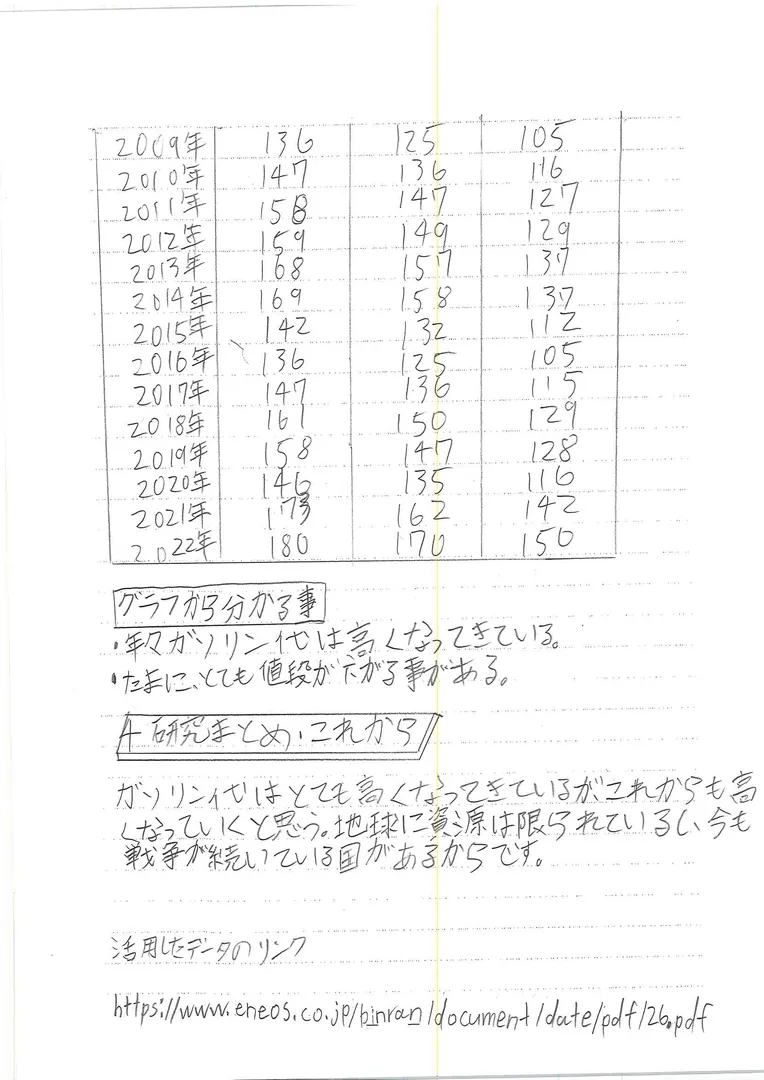 2009年 136 125 105
2010年 147 136 116
2011年 158 147 127
2012年 159 149 129
2013年 168 157 137
2014年 169 158 137
2015年 142 132 112
2016年 136 125 105
2017年 147 136 115
2018年 161 150 129
2019年 158 147 128
2020年 146 135 116
2021年 173 162 142
2022年 180 170 150
グラフから分かる事
・年々ガソリン代は高くなってきている。
・たまに、とても値段が下がる事がある。
4 研究まとめ・これから
ガソリン代はとても高くなってきているが、これからも高
くなっていくと思う。地球に資源は限られているし、今も
戦争が続いている国があるからです。
活用したデータのリンク
https://www.eneos.co.jp/binran/document/date/pdf/26.pdf